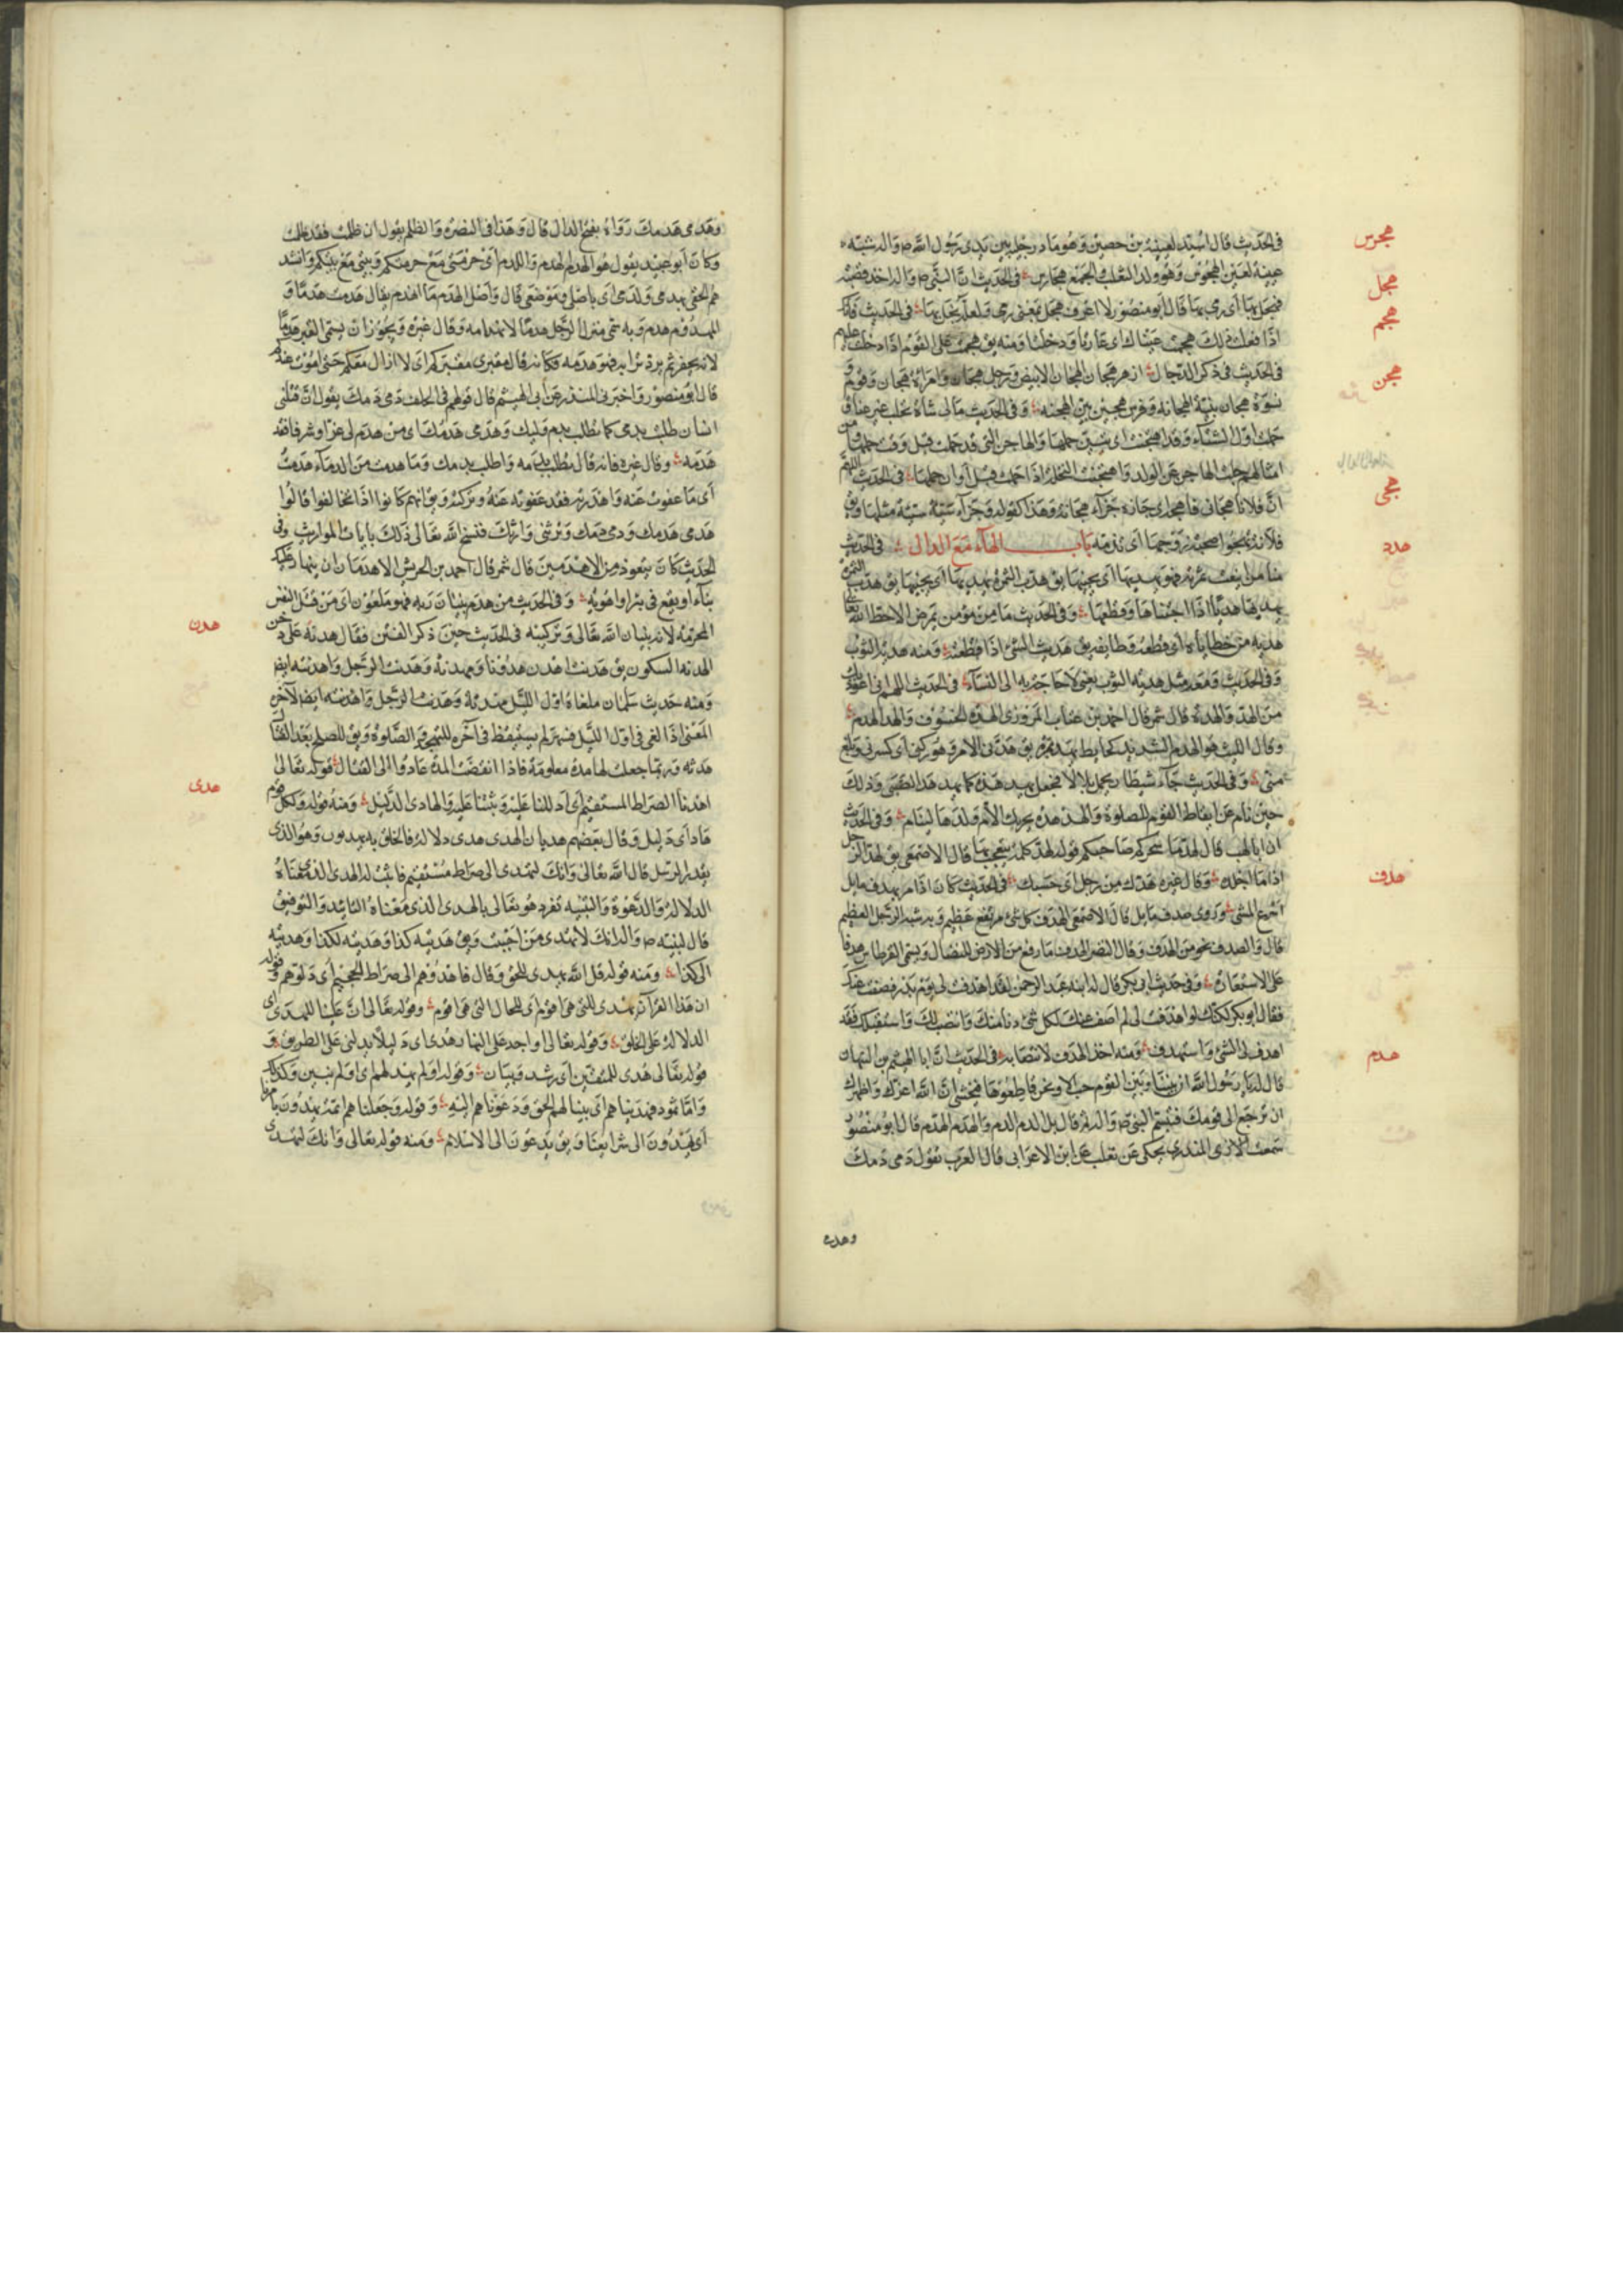 هجرس
في الحديث قال اسيد لعيينة بن حصين وهو ماد رجليه بين يدي رسول الله ص واله
عيينة لعين الهجرس وهو ولد الثعلب والجمع هجارس في الحديث ان النبي ص واله اخذ قصبة
هجل
فهجل بها اى رمى بها قال ابو منصور لا اعرف هجل بمعنى رمى ولعله نجل بها في الحديث
هجم
اذا فعلت ذلك هجمت عيناك اى غارتا ودخلتا ومنه يق هجمت على القوم اذا دخلت عليهم
هجن
في الحديث في ذكر الدجال ازهر هجان الهجان الابيض ورجل هجان وامراة هجان وقوم و
نسوة هجان بينة الهجانة وفرس هجين بين الهجنة وفي الحديث
حملت اول الشتاء وقد اهتجنت اى تبين حملها والهاجن التي قد حملت قبل وقت حملها
امثالهم جلت الهاجن عن الولد واهتجنت النخلة اذا حملت قبل اوان حملها في الحديث اللهم
هجى
ان فلانا هجاني فاهجه اى جازه جزاء هجائه وهذا كقوله وجزاء سيئة سيئة مثلها ويق
فلانة تهجوا صحبة زوجها اى تذمه باب الهآء مع الدال في الحديث
هدد
هدبه من خطاياه اى قطعة وطايفة يق هدبت الشئ اذا قطعته ومنه هدبة الثوب
وفي الحديث ومعه مثل هدبة الثوب في الحديث اللهم اني اعوذ بك
من الهد والهدة قال شمر قال احمد بن غياث المروزي الهد الهدم والهدة الخسوف
وقال الليث هو الهدم الشديد كحايط يهد بمرة يق هدني الامر وهد ركني اى كسرني وبلغ
منى وفي الحديث جاء شيطان فحمل بلالا فجعل يهدهده كما يهدهد الصبي وذلك
حين نام عن ايقاظ القوم للصلوة والهدهدة تحريك الام ولدها لينام وفي الحديث
ان ابا لهب قال لهد ما سحركم صاحبكم قوله لهد كلمة يتعجب بها قال الاصمعي يق لهد الرجل
هدف
اذا ما اجلده وقال غيره هدك من رجل اى حسبك في الحديث كان اذا مر بهدف مايل
اسرع المشي وروى صدف مايل قال الاصمعي الهدف كل شئ مرتفع عظيم وبه شبه الرجل العظيم
قال والصدف نحو من الهدف وقال النضر الهدف ما رفع من الارض للنضال ويسمى القرطاس هدفا
على الاستعارة وفي حديث ابي بكر قال له ابنه عبد الرحمن لقد اهدفت لي يوم بدر فصفت عنك
فقال ابو بكر لكنك لو اهدفت لي لم اصف عنك لكل شئ دنا منك وانتصب لك واستقبلك فقد
هدم
اهدف لي الشئ واستهدف ومنه اخذ الهدف لانتصابه في الحديث ان ابا الهيثم بن التيهان
قال له يا رسول الله ان بيننا وبين القوم حبالا ونحن قاطعوها فنخشى ان الله اعزك واظهرك
ان ترجع الى قومك فتبسم النبي ص واله ثم قال بل الدم الدم والهدم الهدم قال ابو منصور
سمعت المنذري يحكى عن ثعلب عن ابن الاعرابي قال العرب تقول دمي دمك
وهدمي
وهدمي هدمك رواه بفتح الدال قال وهذا في النصرة والظلم يقول ان ظلمت فقد ظلمت
وكان ابو عبيد يقول هو الهدم الهدم واللدم اى حرمتي مع حرمتكم وبيتي مع بيتكم وانشد
ثم الحقي بهدمي ولدمي اى باصلي وموضعي قال واصل الهدم ما انهدم يقال هدمت هدما و
المهدوم هدم وبه سمى منزل الرجل هدما لانهدامه وقال غيره ويجوز ان يسمى القبر هدما
لانه يحفر ثم يرد ترابه فهو هدمه فكانه قال مقبري مقبركم اى لا ازال معكم حتى اموت عندكم
قال ابو منصور واخبرني المنذري عن ابي الهيثم قال قولهم في الحلف دمي دمك يقول ان قتلني
انسان طلبت بدمي كما تطلب بدم وليك وهدمي هدمك اى من هدم لي عزا وشرفا فقد
هدمه
اى ما عفوت عنه واهدرته فقد عفوته عنه وتركته ويق انهم كانوا اذا تحالفوا قالوا
هدمي هدمك ودمي دمك وترثني وارثك فنسخ الله تعالى ذلك بايات المواريث وفي
الحديث كان يتعوذ من الاهدمين قال شمر قال احمد بن الحريش الاهدمان ان ينهار عليك
بناء او يقع في بئر او اهوية وفي الحديث من هدم بنيان ربه فهو ملعون اى من قتل النفس
هدن
المحرمة لانه بنيان الله تعالى وتركيبه في الحديث حين ذكر الفتن فقال هدنة على دخن
الهدنة السكون يق هدنت اهدن هدونا ومهدنة وهدنت الرجل واهدنته ايض
ومنه حديث سلمان ملغاة اول الليل مهدنة وهدنت الرجل واهدنته ايض لآخره
المعنى اذا لغي في اول الليل فسهر لم يستيقظ في آخره للتهجد والصلوة ويق للصلح بعد القتال
هدى
هدنة وربما جعلت لها مدة معلومة فاذا انقضت المدة عادوا الى القتال قوله تعالى
اهدنا الصراط المستقيم اى دللنا عليه وثبتنا عليه والهادي الدليل ومنه قوله ولكل قوم
هاد اى دليل وقال بعضهم هديان الهدى هدى دلالة فالخلق به يهدون وهو الذي
يقدر الرسل قال الله تعالى وانك لتهدي الى صراط مستقيم فاثبت له الهدى الذي معناه
الدلالة والدعوة والتنبيه تفرد هو تعالى بالهدى الذي معناه التائيد والتوفيق
قال لنبيه ص واله انك لا تهدي من احببت ويق هديته كذا وهديته لكذا وهديته
الى كذا ومنه قوله قل الله يهدي للحق وقال فاهدوهم الى صراط الجحيم اى دلوهم وقوله
ان هذا القرآن يهدي للتي هي اقوم اى للحال التي هي اقوم وقوله تعالى ان علينا للهدى اى
الدلالة على الخلق وقوله تعالى او اجد على النار هدى اى دليلا يدلني على الطريق و
قوله تعالى هدى للمتقين اى رشد وبيان وقوله اولم يهد لهم اى اولم يتبين وكذلك
واما ثمود فهديناهم اى بينا لهم الحق ودعوناهم اليه وقوله وجعلناهم ائمة يهدون بامرنا
اى يهدون الى شرايعنا ويق يدعون الى الاسلام ومنه قوله تعالى وانك لتهدى